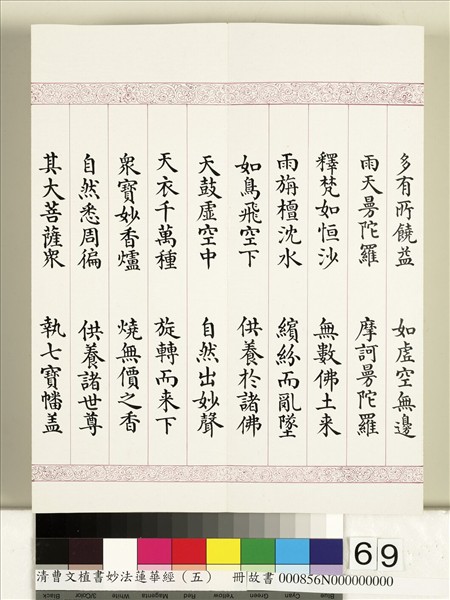 多有所饒益　如虛空無邊
雨天曼陀羅　摩訶曼陀羅
釋梵如恒沙　無數佛土来
雨旃檀沈水　繽紛而亂墜
如鳥飛空下　供養於諸佛
天鼓虛空中　自然出妙聲
天衣千萬種　旋轉而来下
眾寶妙香爐　燒無價之香
自然悉周徧　供養諸世尊
其大菩薩眾　執七寶幡盖
69
清曹文植書妙法蓮華經（五）　冊故書 000856N000000000
Black 3/Color White Magenta Red Yellow Green Cyan Blue